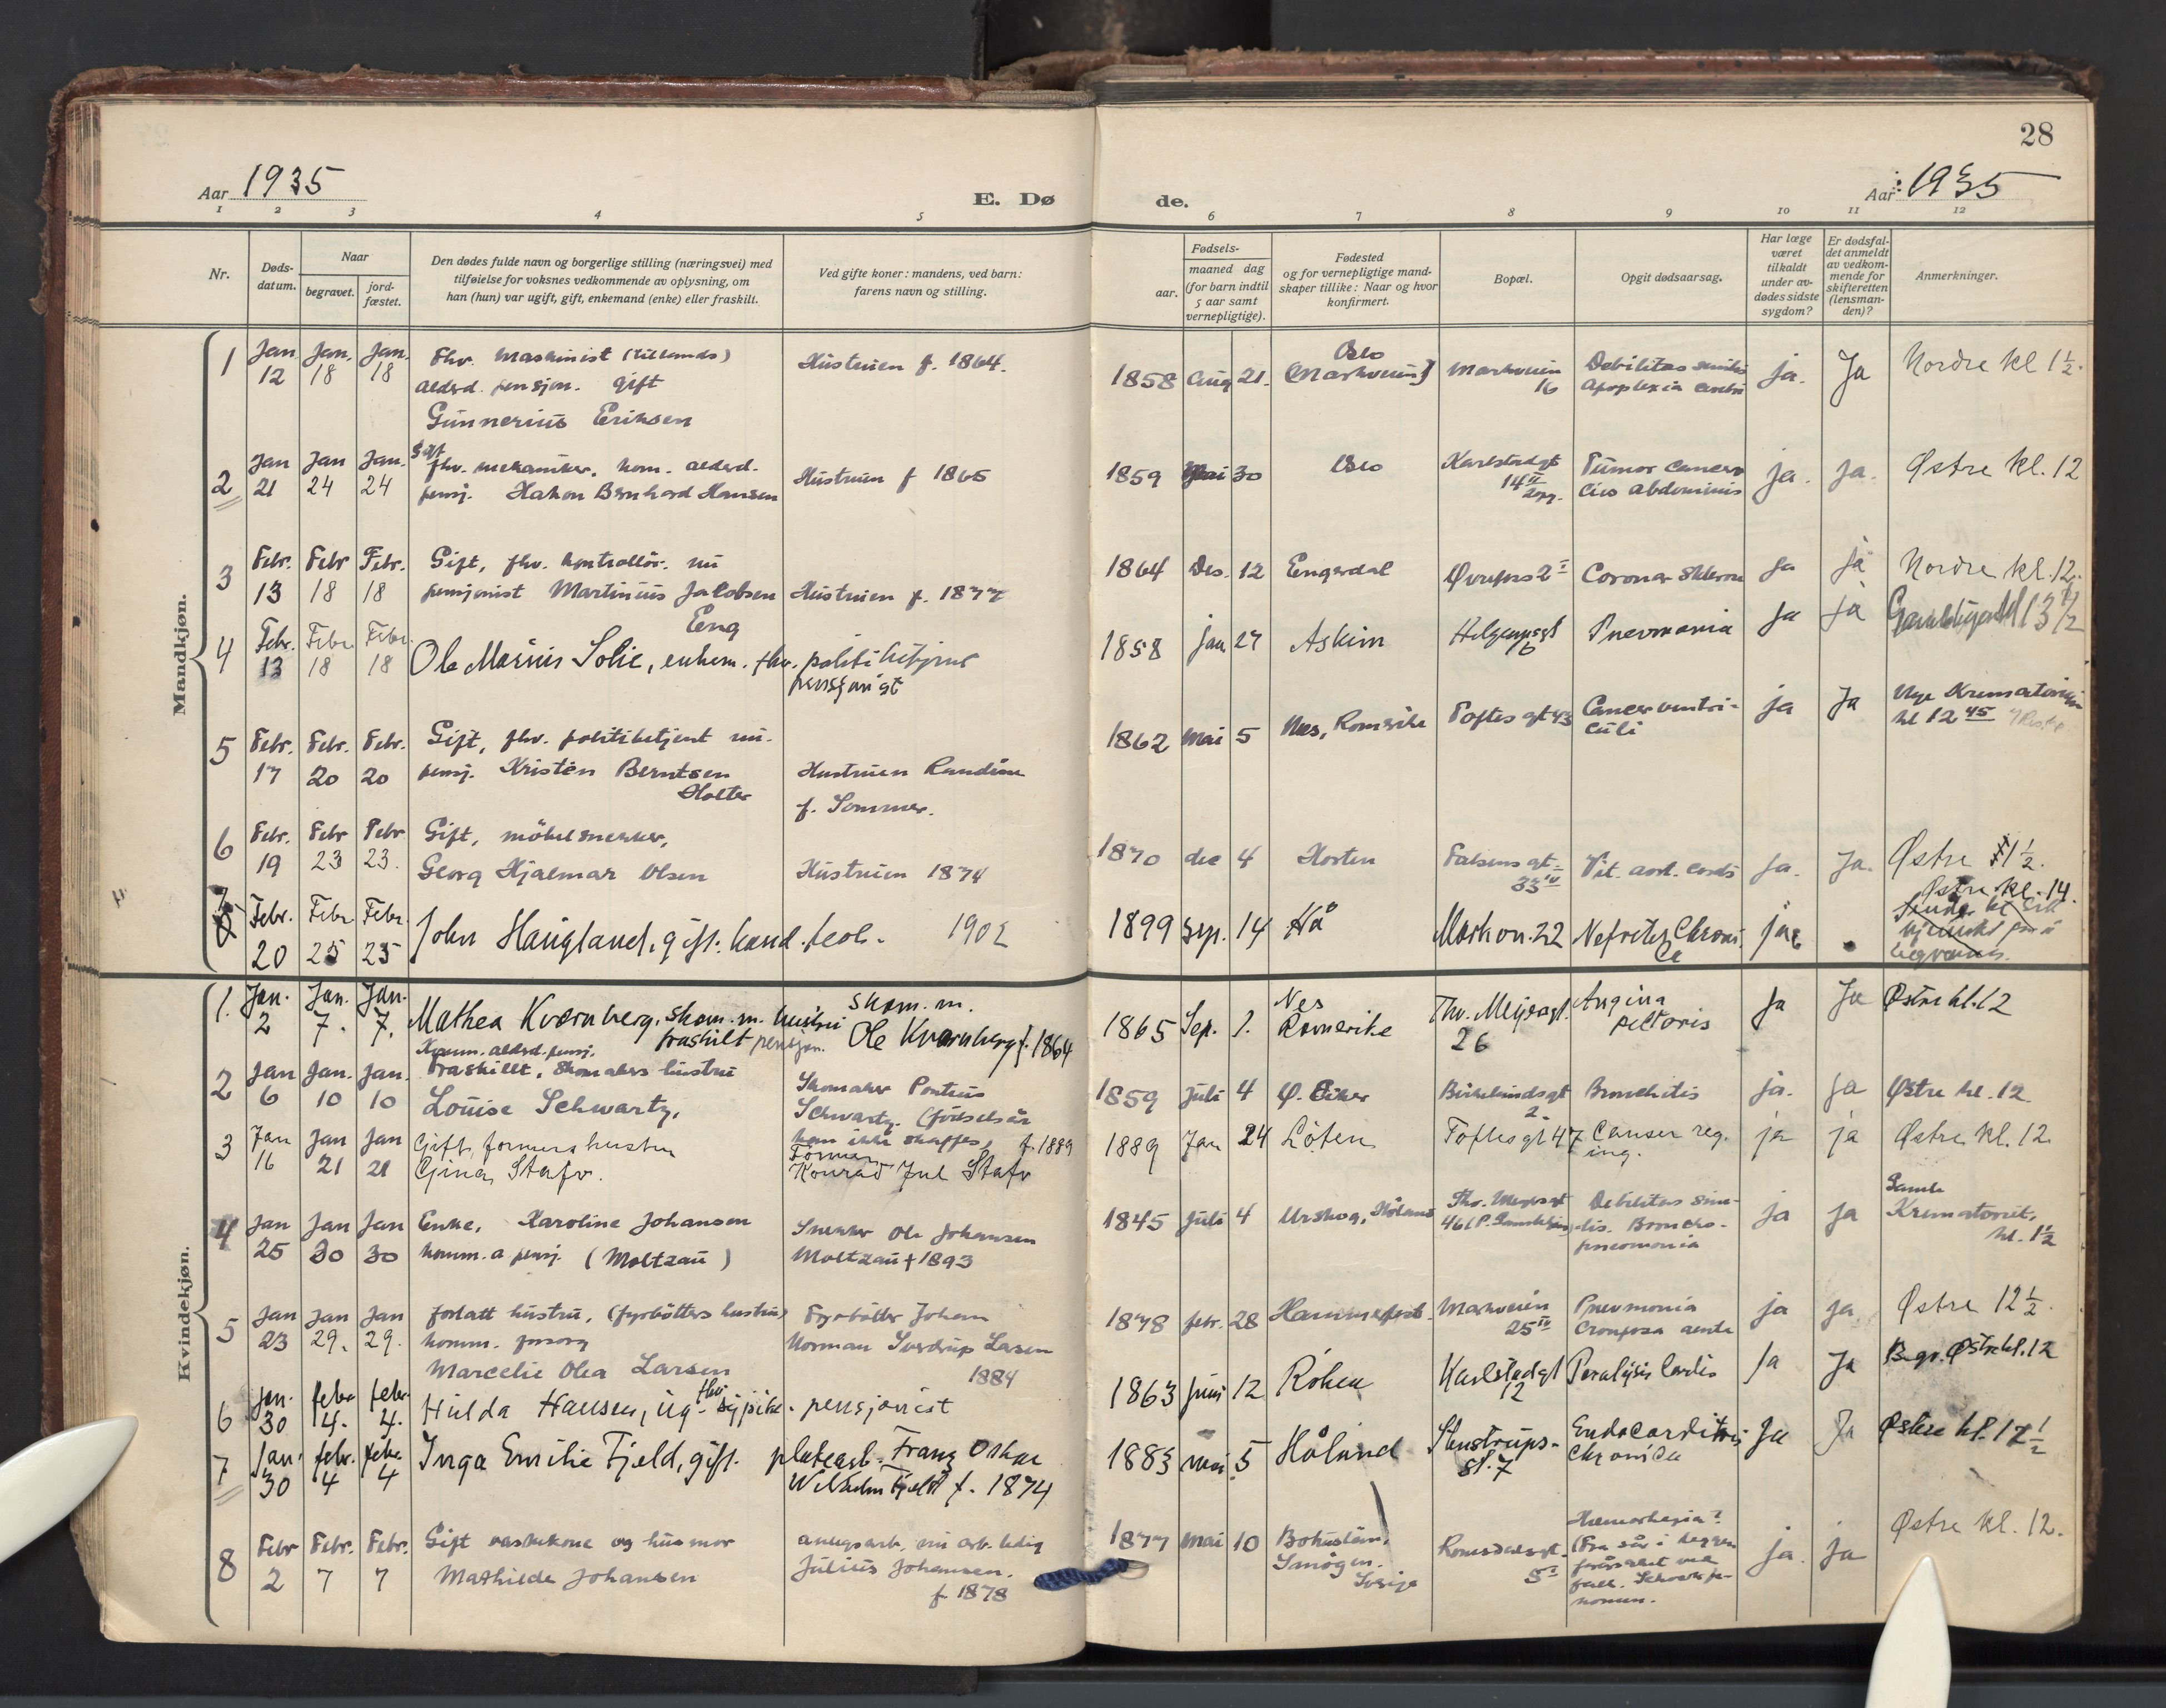 28
Aar 1935
E. Dø de.
Aar 1935
1 2 3 4 5 6 7 8 9 10 11 12
Nr.
Døds-datum.
Naar
begravet.
jord-fæstet.
Den dødes fulde navn og borgerlige stilling (næringsvei) med
tilføielse for voksnes vedkommende av oplysning, om
han (hun) var ugift, gift, enkemand (enke) eller fraskilt.
Ved gifte koner: mandens, ved barn:
farens navn og stilling.
Fødsels-
aar.
maaned dag
(for barn indtil
5 aar samt
vernepligtige).
Fødested
og for vernepligtige mand-
skaper tillike: Naar og hvor
konfirmert.
Bopæl.
Opgit dødsaarsag.
Har læge
været
tilkaldt
under av-
dødes sidste
sygdom?
Er dødsfal-
det anmeldt
av vedkom-
mende for
skifteretten
(lensman-
den)?
Anmerkninger.
Mandkjøn.
1 Jan 12 Jan. 18 Jan. 18 Fhv. maskinist
aldrd. pensjon. gift
Gunnerius Eriksen
Hustruen f. 1864. 1858 Aug 21. Oslo
(Markveien) Markveien 16 Debilitas senilis
Apoplexia cerebri ja. Ja Nordre kl 1½.
2 Jan 21 Jan 24 Jan. 24 Gift
fhv. mekaniker, kom. aldrd.
pensj. Hakon Bernhard Hansen
Hustruen f 1865 1859 Mai 30 Oslo Karlstadgt 14 II
Tumor cancero
abdominis ja. ja. Østre kl. 12
3 Febr. 13 Febr 18 Febr. 18 Gift, fhv. kontrollør. nu
pensjonist Martinius Jakobsen
Eng
Hustruen f. 1877 1864 Des. 12 Engerdal 2 I Coronar sklerose ja ja Nordre kl. 12.
4 Febr. 13 Febr 18 Febr. 18 Ole Marius Solie, enkem. fhv. politibetjent
pensjonist
1858 jan 27 Askim Helgesensgt 16 Pnevmonia ja ja
5 Febr. 17 Febr. 20 Febr. 20 Gift, fhv. politibetjent nu.
pensj. Kristen Berntsen
Holter
Hustruen Randine
f. Sommer.
1862 mai 5 Nes, Romerike Toftes gt 43 Cancer ventri-
culi ja Ja Nye Krematorium
kl 12 45
6 Febr. 19 Febr 23 Febr 23. Gift, møbelsnekker,
Georg Hjalmar Olsen
Hustruen 1874 1870 dec 4 Horten Falsens gt 33 IV Vit. aort. cordis ja. Ja. Østre 1½.
7 Febr. 20 Febr 25 Febr 25 John Haugland, gift. kand. teol. 1902
1899 sep. 14 Hå Markv. 22 Nefritis Chroni
ca ja Østre kl. 14.
Kvindekjøn.
1. Jan. 2 Jan. 7. Jan. 7. Mathea Kværnberg, skom. m. hustru
fraskilt pensjon.
skom. m.
Ole Kvernberg f. 1864
1865 Sep. 1. Nes
Romerike Thv. Meyersgt. 26 Angina
pectoris Ja Ja Østre kl. 12
2 Jan 6 Jan. 10 Jan. 10 Komm. aldrd. pensj.
Fraskillt, skomakers hustru
Louise Schwartz.
Skomaker Pontus
Schwartz. (fødselsår
kan ikke skaffes)
1859 Juli 4 Ø. Eiker Birkelundsgt 2. Bronchitis ja. ja Østre kl. 12
3 Jan 16 Jan 21 Jan 21 Gift, formers hustru
Gina Stafv.
f. 1889
Former
Konrad Jul Stafv
1889 Jan 24 Løten Toftesgt 47 Canser reg.
ing. ja ja Østre kl. 12.
4 Jan 25 Jan 30 Jan 30 Enke, Karoline Johansen
komm. a. pensj. (Moltzau)
Snekker Ole Johansen
Moltzau † 1893
1845 Juli 4 Urskog, Høland Thv. Meyersgt 46 Debilitas seni-
lis. Broncho-
pneomonia ja ja Gamle
Krematoriet,
kl. 1½
5 Jan 23 Jan 29. Jan 29. forlatt hustru, (fyrbøters hustru)
komm. forsorg
Marcelie Olea Larsen
Fyrbøter Johan
Norman Sverdrup Larsen
1884
1878 febr. 28 Hammerfest. Markveien 25 IV Pnevmonia
Crouposa ja ja Østre 12½.
6 Jan. 30 febr 4. febr 4. Hulda Hansen, ug. fhv. sypike. pensjonist
1863 juni 12 Røken Karlstadgt 12 Paralysis Cordis Ja Ja Begr. Østre kl. 12
7 Jan. 30 febr. 4 febr. 4 Inga Emilie Fjeld, gift. platearb. Franz Oskar
Wilhelm Fjeld f. 1874
1883 mai 5 Høland Stenstrups-
gt. 7 Endocarditis
Chronica Ja Ja Østre kl. 12½
8 Febr 2 Febr. 7 Febr. 7 Gift vaskekone og husmor
Mathilde Johansen
anlegsarb. nu arb. ledig
Julius Johansen.
f. 1878
1877 mai 10 Bohuslän,
Smögen.
Sverige Romsdalsgt. Hæmorhagia?
(Fra sår i leggen
forårsaket ved
fall. ja. ja Østre kl. 12.